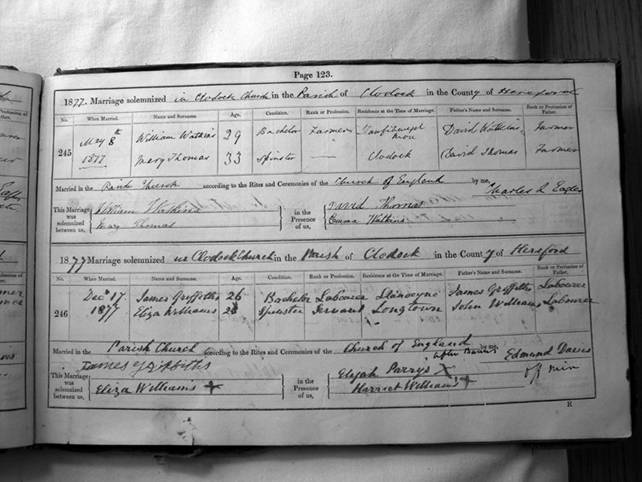 Page 123.
1877. Marriage solemnized in Clodock Church in the Parish of Clodock in the County of Hereford
No. When Married. Name and Surname. Age. Condition. Rank or Profession. Residence at the Time of Marriage. Father's Name and Surname. Rank or Profession of Father.
245 May 8th 1877 William Watkins 29 Bachelor Farmer David Watkins Farmer
Mary Thomas 33 Spinster — Clodock David Thomas Farmer
Married in the Parish Church according to the Rites and Ceremonies of the Church of England by me, Charles L Eagles
This Marriage was solemnized between us, William Watkins Mary Thomas in the Presence of us, David Thomas Emma Watkins
1877 Marriage solemnized in Clodock Church in the Parish of Clodock in the County of Hereford
No. When Married. Name and Surname. Age. Condition. Rank or Profession. Residence at the Time of Marriage. Father's Name and Surname. Rank or Profession of Father.
246 Decr 17 1877 James Griffiths 26 Bachelor Labourer Llanveyno James Griffiths Labourer
Eliza Williams 28 Spinster Servant Longtown John Williams Labourer
Married in the Parish Church according to the Rites and Ceremonies of the Church of England after Banns by me, Edmund Davies
This Marriage was solemnized between us, James Griffiths Eliza Williams X in the Presence of us, Elijah Parry's X Harriet Williams X
K